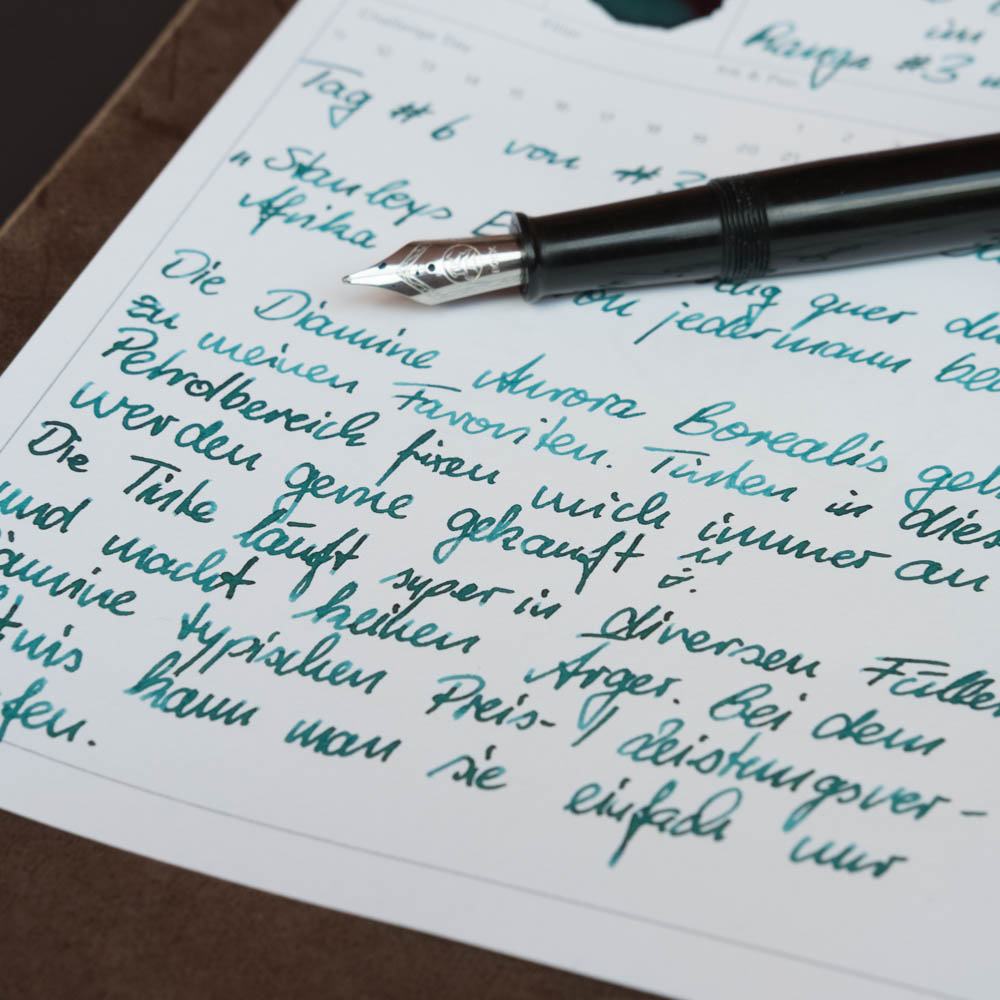 im
Range #3
Challenge Tag
12 13 14 15 16 17 18 19 20 21
1 2
Tag #6 von #3
"Stanleys E
Afrika quer du
von jedermann be
Die Diamine Aurora Borealis geh
zu meinen Favoriten. Tinten in dies
Petrolbereich fixen mich immer an
werden gerne gekauft
Die Tinte läuft super in diversen Füller
und macht keinen Ärger. Bei dem
iamine typischen Preis-/Leistungsver-
tnis kann man sie einfach nur
fen.